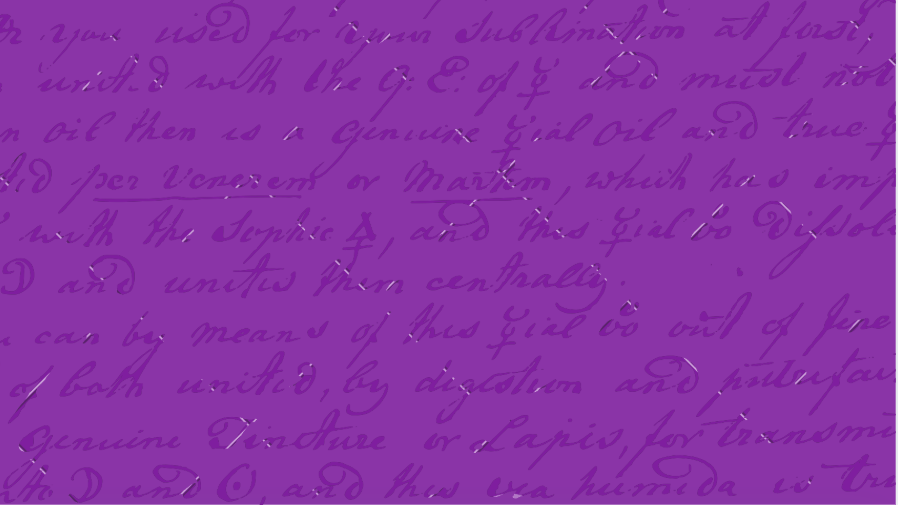 you used for your Sublimation at first,
united with the G: E: of ☿ and must not
oil then is a genuine ☿ial oil and true ☿
per Venerem or Martem, which has imp
with the Sophic 🜍, and this ☿ial Dissol
☽ and unites them centrally.
can by means of this ☿ial out of fine
of both united, by digestion and putrefac
Genuine Tincture or Lapis, for transmu
into ☽ and ☉, and this via humida is tru